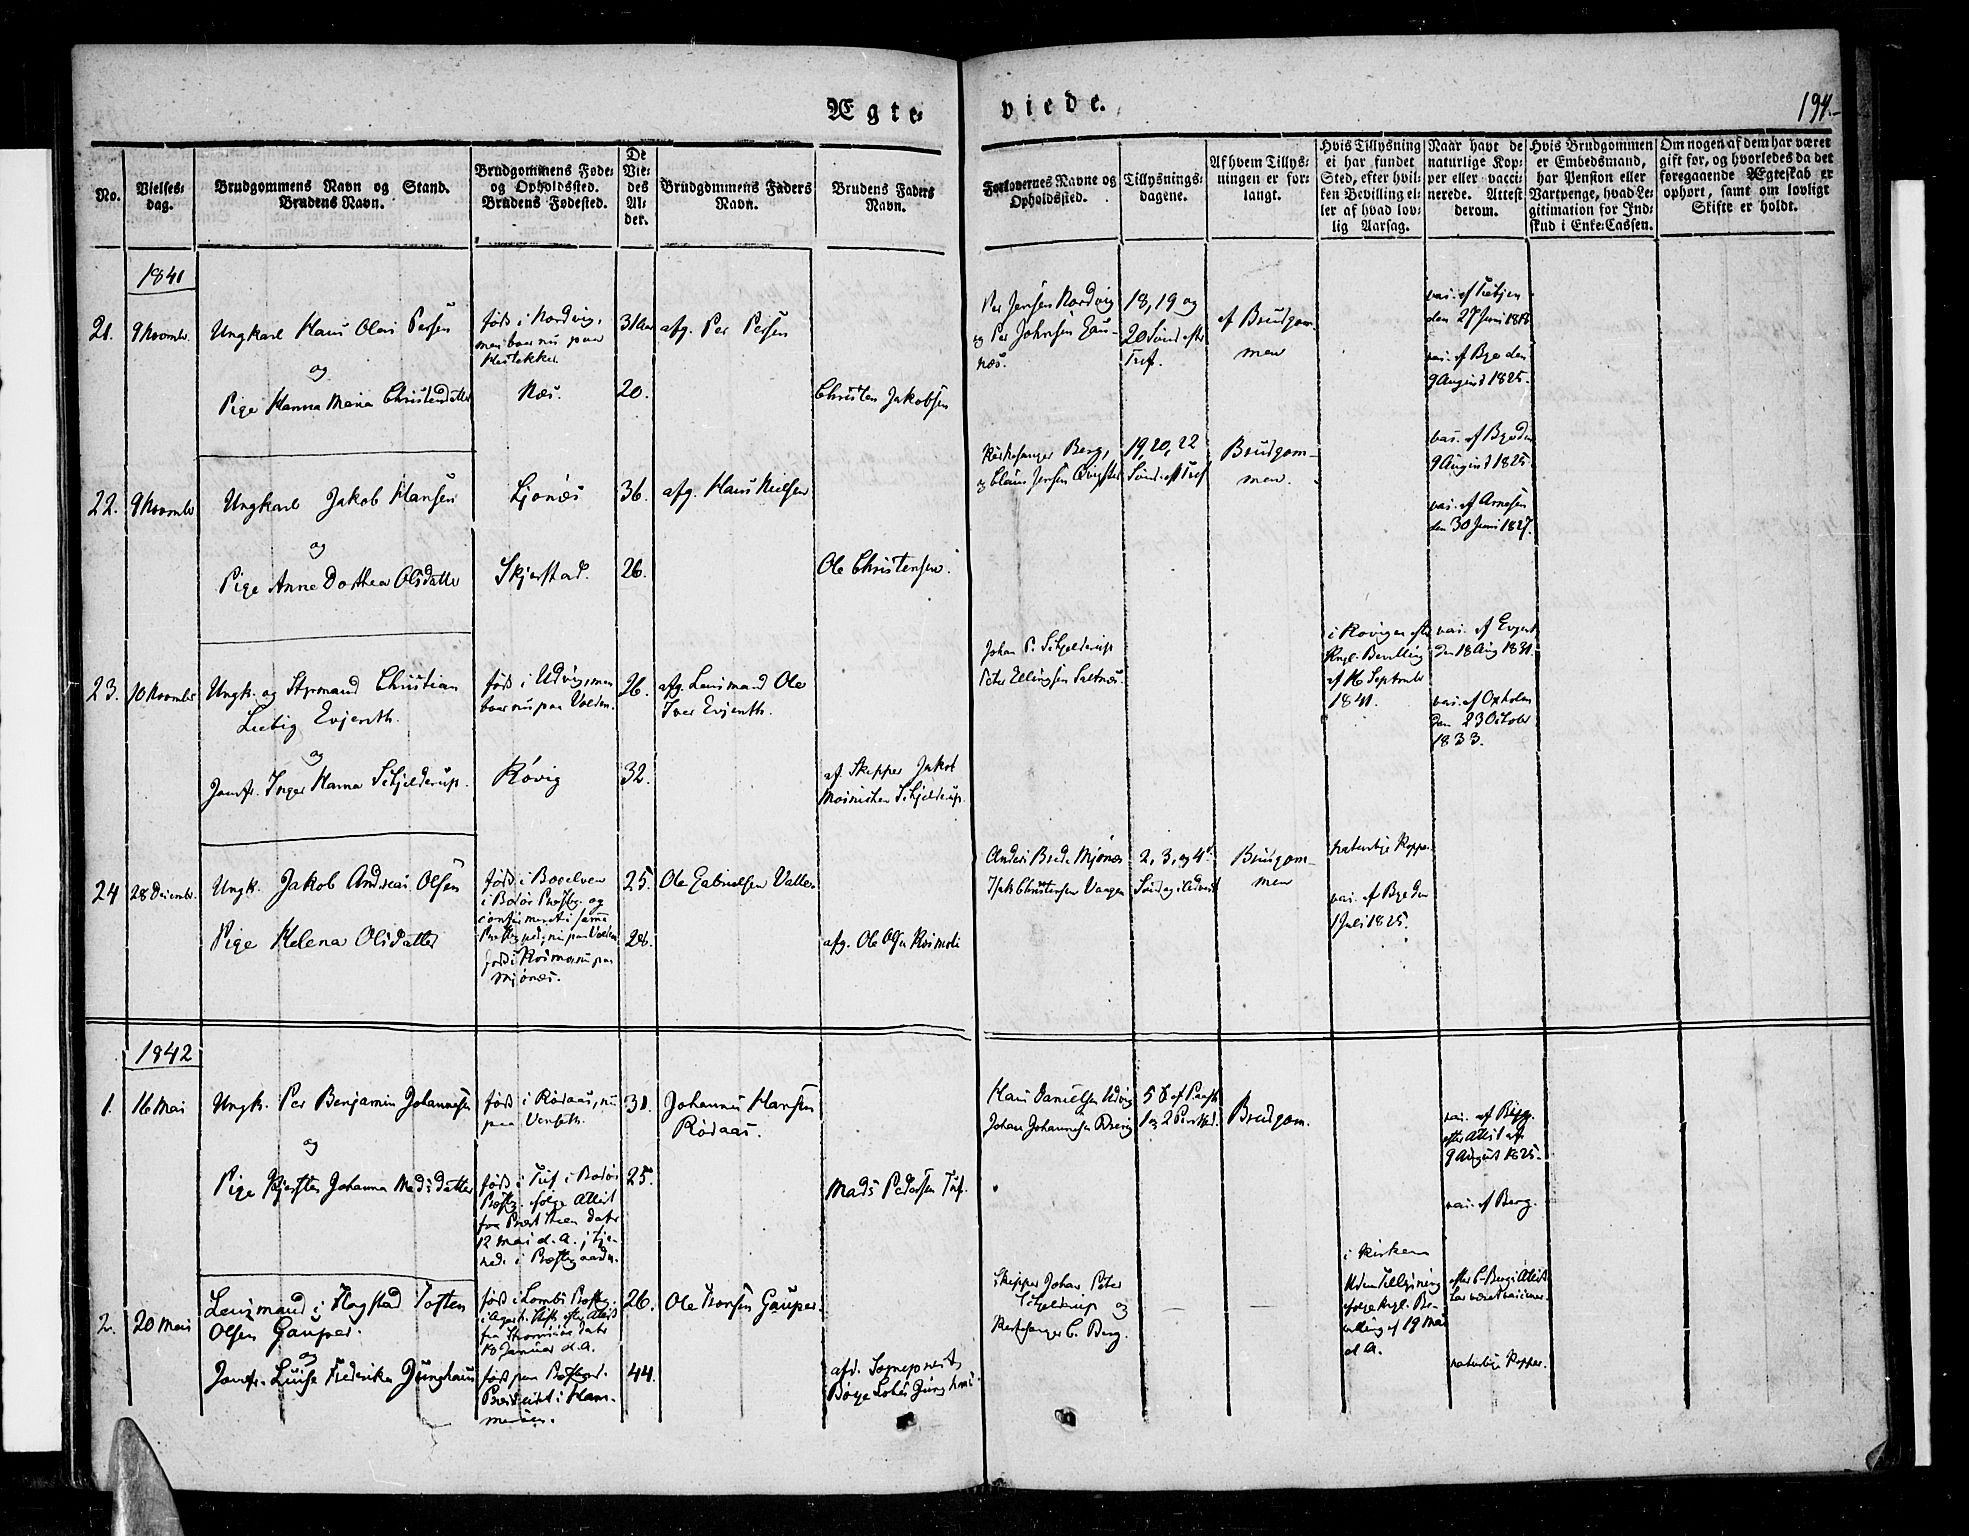 Ægte-
viede.
194.
No.
Vielses-
dag.
Brudgommens Navn og Stand.
Brudens Navn.
Brudgommens Føde-
og Opholdssted.
Brudens Fødested.
De
Vie-
des
Al-
der.
Brudgommens Faders
Navn.
Brudens Faders
Navn.
Forlovernes Navne og
Opholdssted.
Tillysnings-
dagene.
Af hvem Tillys-
ningen er for-
langt.
Hvis Tillysning
ei har fundet
Sted, efter hvil-
ken Bevilling el-
ler af hvad lov-
lig Aarsag.
Naar havt de
naturlige Kop-
per eller vacci-
nerede. Attest
derom.
Hvis Brudgommen
er Embedsmand,
har Pension eller
Vartpenge, hvad Le-
gitimation for Ind-
skud i Enke-Cassen.
Om nogen af dem har været
gift før, og hvorledes da det
foregaaende Ægteskab er
ophørt, samt om lovligt
Skifte er holdt.
1841
21.
9 Novembr
Ungkarl Hans Olai Persen
og
Pige Hanna Maria Christensdatter
født i Nordvig,
men boer nu paa
Næs.
31 Aar
20.
afg. Per Persen
Christen Jakobsen
Per Jensen Nordvig
og Per Johnsen
næs.
18, 19 og
20 Sønd efter
Tref.
af Brudgom-
men
vac. af
den 27 Juni 1818
vac. af Bye den
9 August 1825.
22.
9 Novembr
Ungkarl Jakob Hansen
og
Pige Anne Dorthea Olsdatter
Ljønæs
Skjerstad.
36.
26.
afg. Hans Nielsen
Ole Christensen.
Kirkesanger Berg,
og Claus Jensen
19, 20, 22
Sønd. eft Tref
Brudgom-
men.
vac. af Bye den
9 August 1825
vac. af Arnesen
den 30 Juni 1827.
23.
10 Novembr
Ungk. og Styrmand Christian
Ludvig Evjenth.
og
Jomfr. Inger Hanna Schjelderup.
født i Udvig, men
boer nu paa Volden.
Røvig
26.
32.
afg. Lensmand Ole
Iver Evjenth.
af. Skipper Jakob
Schjelderup.
Johan P. Schjelderup
Peter Ellingsen Saltnæs.
i Røvigen efter
Kngl. Bevilling
af 16 September
1841.
vac. af Evjent
den 18 Aug 1831.
vac. af Oxholm
den 23 October
1833.
24
28 Decembr.
Ungk. Jakob Andreas Olsen
Pige Helena Olsdatter
født i Bogelven
i Bodøe Præstg. og
confirmeret i samme
Præstegjeld, nu paa Volden
født i nu paa
Mjønæs.
25.
26.
Ole Gabrielsen Valler
afg. Ole Olsen
Anders Brede Mjønæs
Isak Christensen Vaagen
2, 3, og 4
Søndag i Advent
Brudgom-
men
naturlige Kopper
vac. af Bye den
1 Juli 1825.
1842
1.
16 Mai
Ungk. Per Benjamin Johannesen
og
Pige Kjersten Johanna Madsdatter
født i Rødaas, nu
paa Venseth.
født i Tuf i Bodøe
Præstg. ifølge Attest
fra Præst Steen dater
12 Mai d. A., tje-
nede i Præstegaarden.
31.
25.
Johannes Hansen
Rødaas.
Mads Pedersen Tuf.
Hans Danielsen Udvig
Johan Johannesen
5 6 ef Paask
1 og 2 Pintsed.
Brudgom.
vac. af Bye
efter Attest af
9 August 1825.
vac. af Berg.
2.
20 Mai
Lensmand i Flogstad Tosten
Olsen Gauper.
og
Jomfr. Luise Frederika Junghans
født i Lombs Præstg.
i Agers h. Stift efter Attest
fra dater
18 Januar d. A.
født paa
Præstegaard i Ham-
merøen.
26.
44.
Ole Iversen Gauper
afd. Sognepræst
Børge Junghans
Skipper Johan Peter
Schjelderup og
Kirkesanger C. Berg.
i Kirken
uden Tillysning
ifølge Kngl. Be-
villing af 19 Mai
d. A.
efter C. Bergs Attest
har været vaccineret.
naturlige Kopper.